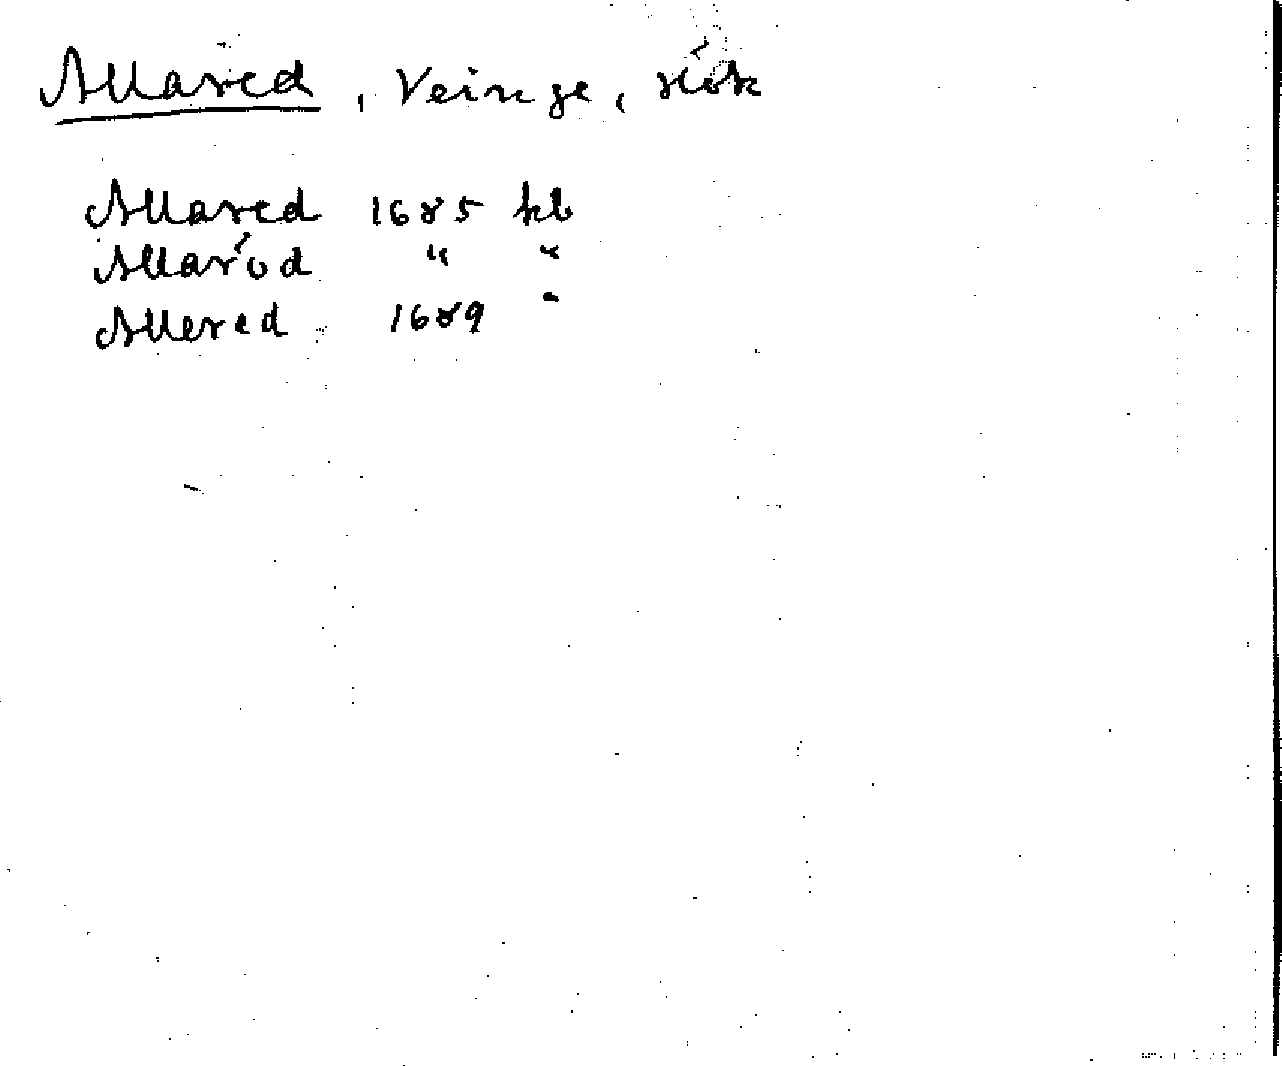 Allared, Veinge, Hök
Allared 1685 kb
Allaröd " "
Allered 1689 "